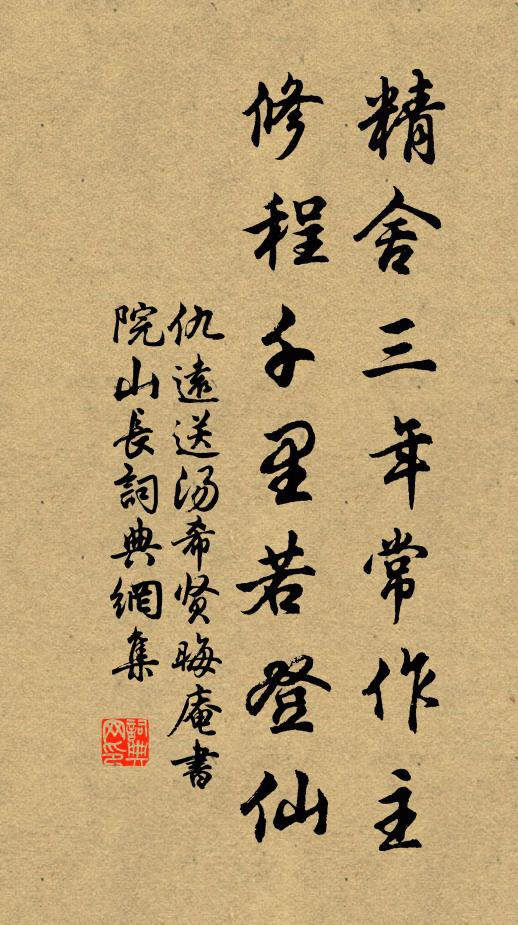 精舍三年常作主
修程千里若登仙
仇遠送湯希贤晦庵書
院山長詞典網集
詞典网印